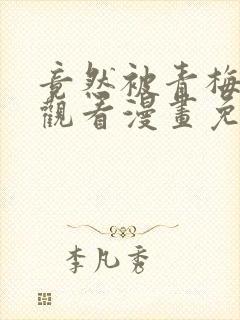 竟然被青梅
觀看漫畫免
李凡秀